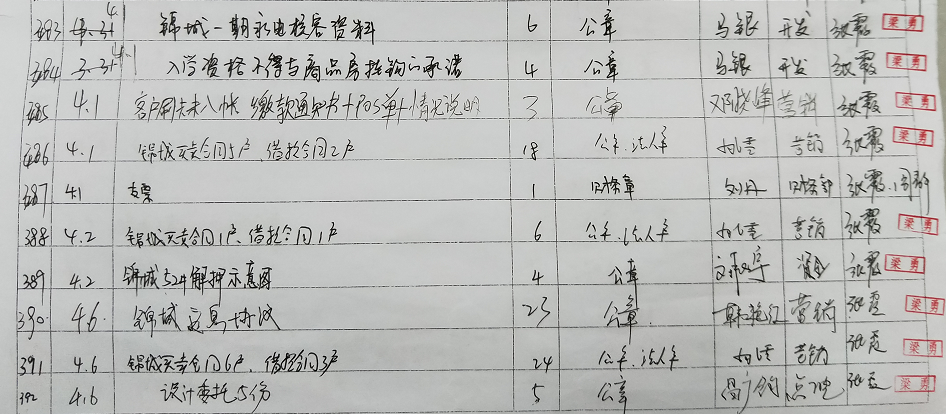 383 4.1 锦城一期水电核容资料 6 公章 马银 开发 张霞 梁勇
384 4.1 入学资格不得与商品房挂钩的承诺 4 公章 马银 开发 张霞 梁勇
385 4.1 客户刷卡未入帐 缴款通知书+POS单+情况说明 3 公章 邓晓峰 营销 张霞 梁勇
386 4.1 锦城买卖合同5户、借款合同2户 18 公章.法人章 营销 张霞 梁勇
387 4.1 支票 1 财务章 刘丹 财务部 张霞
388 4.2 锦城买卖合同1户、借款合同1户 6 公章.法人章 营销 张霞 梁勇
389 4.2 锦城52#解押示意图 4 公章 张霞 梁勇
390 4.6 锦城 协议 23 公章 韩艳红 营销 张霞 梁勇
391 4.6 锦城买卖合同6户、借款合同3户 24 公章.法人章 营销 张霞 梁勇
392 4.6 设计委托5份 5 公章 张霞 梁勇